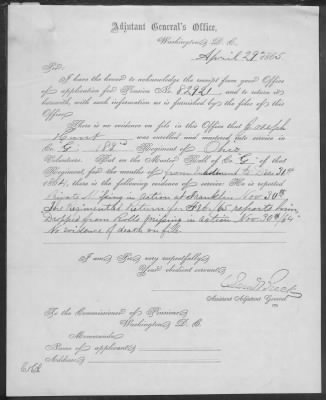 Adjutant General's Office,
Washington, D. C.
April 29th 1865.
Sir:
I have the honor to acknowledge the receipt from your Office
of application for Pension No. 82921 and to return it
herewith, with such information as is furnished by the files of this
Office.
There is no evidence on file in this Office that Joseph
was enrolled and mustered into service in
Co. G. 183d Regiment of Ohio
Volunteers. But on the Muster Roll of Co. G. of that
Regiment, for the months of from to Dec 31st
1864, there is the following evidence of service: He is reported
Private Missing in action at Franklin Nov 30th
The Regimental Return for Feb /65 reports him
Dropped from Rolls Missing in action Nov 30th/64
No evidence of death on file.
I am Sir, very respectfully
Your obedient servant,
Assistant Adjutant General
To the Commissioner of Pensions
Washington D. C.
Memoranda:
Name of applicant
Address